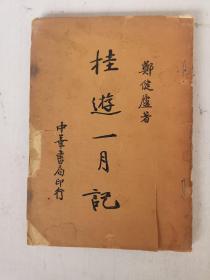 鄭健廬著
桂遊一月記
中華書局印行